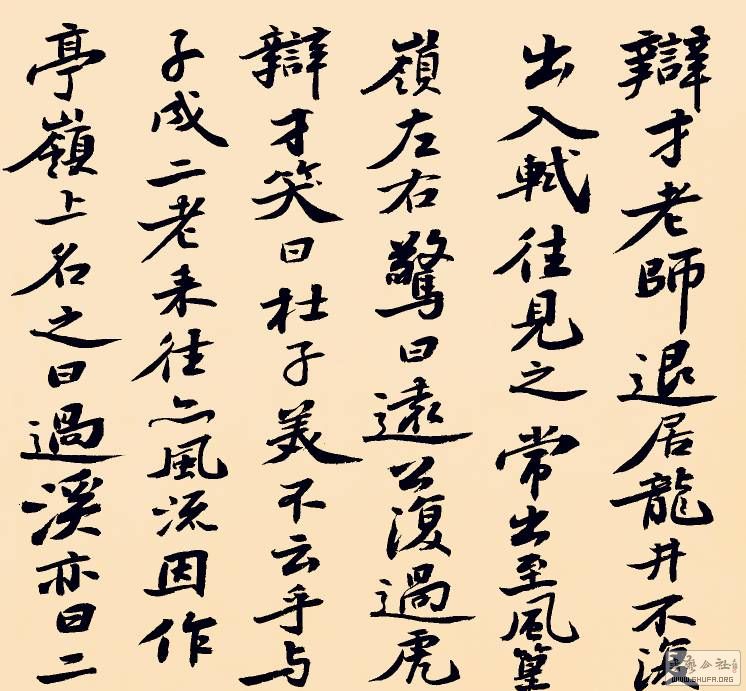 辯才老師退居龍井不復
出入軾往見之常出至風篁
嶺左右驚曰遠公復過虎
辯才笑曰杜子美不云乎与
子成二老来往亦風流因作
亭嶺上名之曰過溪亦曰二
WWW.SHUFA.ORG